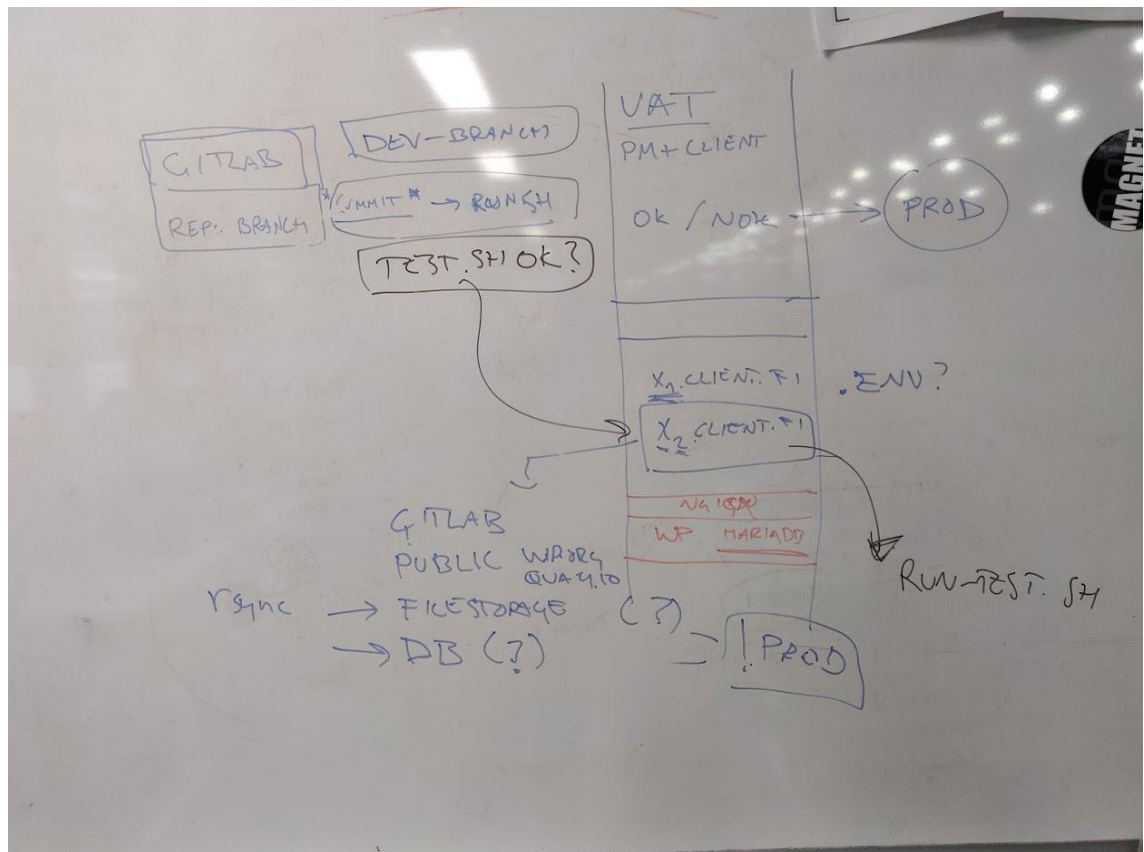 GITLAB
REP: BRANCH
DEV-BRANCH
*COMMIT* → RUN.SH
TEST.SH OK?
UAT
PM+CLIENT
OK / NOK → PROD
X1.CLIENT.FI
.ENV?
X2.CLIENT.FI
NGINX
WP MARIADB
RUN-TEST.SH
GITLAB
PUBLIC WPORG
QUAY.IO
rsync → FILESTORAGE (?)
→ DB (?)
! PROD
MAGNET